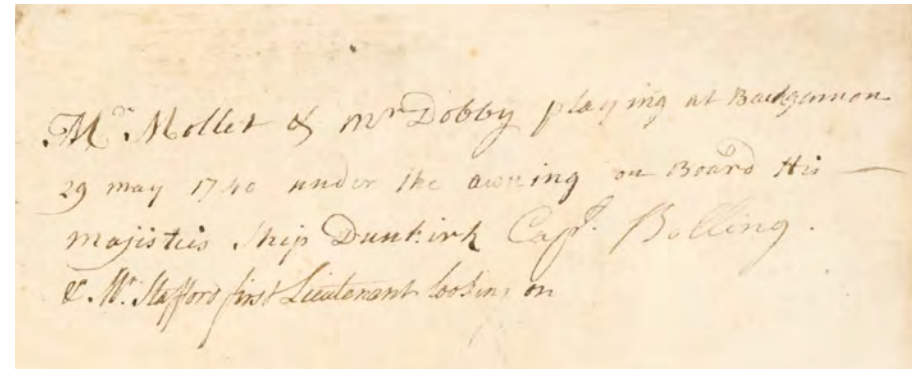 Mr. Mollet & Mr Dobby playing at Backgamon
29 may 1740 under the awning on Board His —
majisties Ship Dunkirk Capt. Bolling.
& Mr. Stafford first Lieutenant looking on